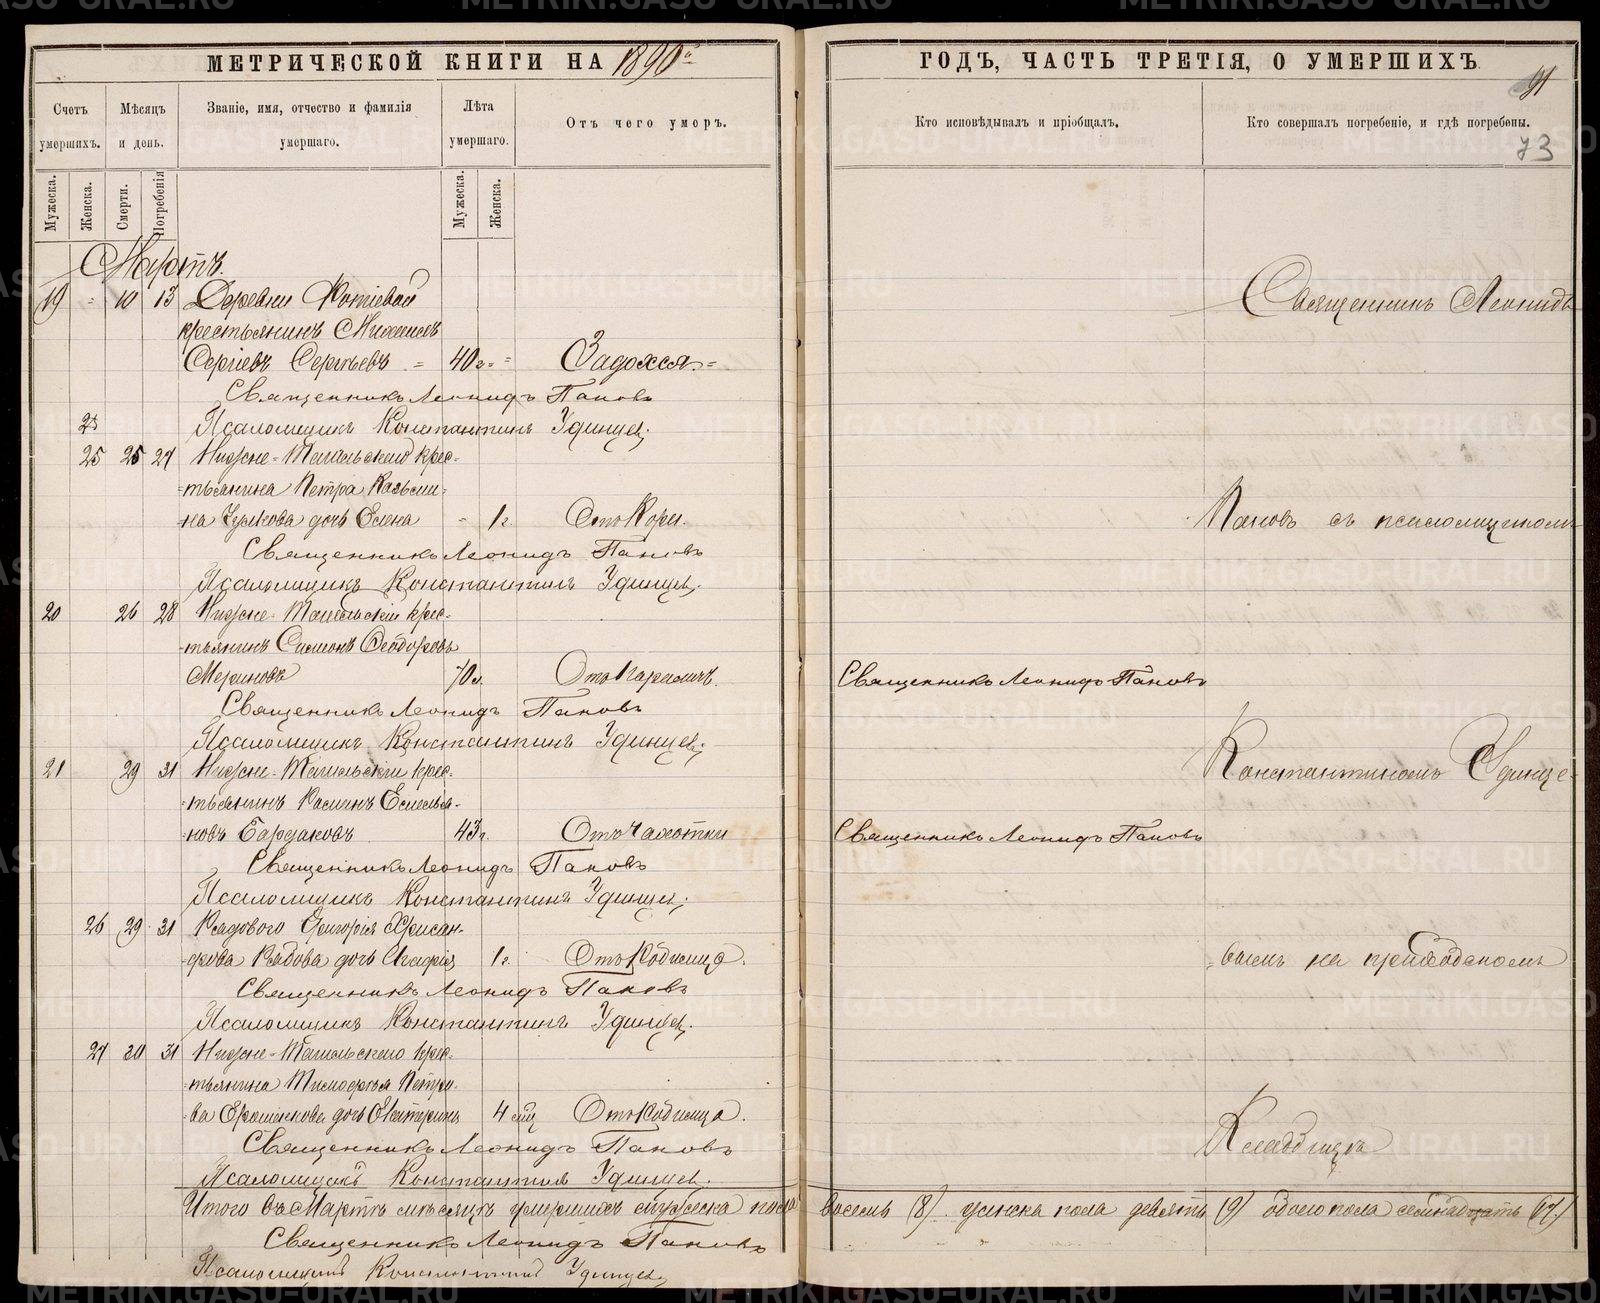 МЕТРИЧЕСКОЙ КНИГИ НА 1890й
ГОДЪ, ЧАСТЬ ТРЕТІЯ, О УМЕРШИХЪ.
91
73
Счетъ умершихъ.
Мѣсяцъ и день.
Званіе, имя, отчество и фамилія умершаго.
Лѣта умершаго.
Отъ чего умеръ.
Кто исповѣдывалъ и пріобщалъ.
Кто совершалъ погребеніе, и гдѣ погребены.
Мужеска.
Женска.
Смерти.
Погребенія
Мужеска.
Женска.
Мартъ.
19 - 10 13 Деревни
крестьянинъ
Сергіевъ Сергѣевъ = 40 г. Задохся
Священникъ Леонидъ Пановъ
Псаломщикъ Константинъ Удинцев.
25 25 27 Нижне-Тагильскаго крес-
тьянина Петра Козьми-
на дочь Елена - 1 г. Отъ Кори.
Священникъ Леонидъ Пановъ
Псаломщикъ Константинъ Удинцев.
20 26 28 Нижне-Тагильскій крес-
тьянинъ Симеонъ Ѳеодоровъ
Мериновъ 70 л. Отъ Паралича.
Священникъ Леонидъ Пановъ
Священникъ Леонидъ Пановъ
Псаломщикъ Константинъ Удинцев.
21 29 31 Нижне-Тагильскій крес-
тьянинъ Емелья-
новъ Бардаковъ 43 г. Отъ Чахотки
Священникъ Леонидъ Пановъ
Священникъ Леонидъ Пановъ
Псаломщикъ Константинъ Удинцев.
26 29 31 Рядового Григорія Хрисан-
фова дочь 1 г. Отъ Родимца.
Священникъ Леонидъ Пановъ
Псаломщикъ Константинъ Удинцев.
27 30 31 Нижне-Тагильскаго крес-
тьянина Тимофея Петро-
ва дочь Екатерина 4 мѣс. Отъ Родимца.
Священникъ Леонидъ Пановъ
Псаломщикъ Константинъ Удинцев.
Священникъ Леонидъ
Пановъ съ псаломщикомъ
Константиномъ Удинце-
вымъ на приходскомъ
Кладбищѣ
Итого въ Мартѣ мѣсяцѣ умершихъ мужеска пола восемь (8) женска пола девять (9) обоего пола семнадцать (17)
Священникъ Леонидъ Пановъ
Псаломщикъ Константинъ Удинцев.
METRIKI.GASO-URAL.RU